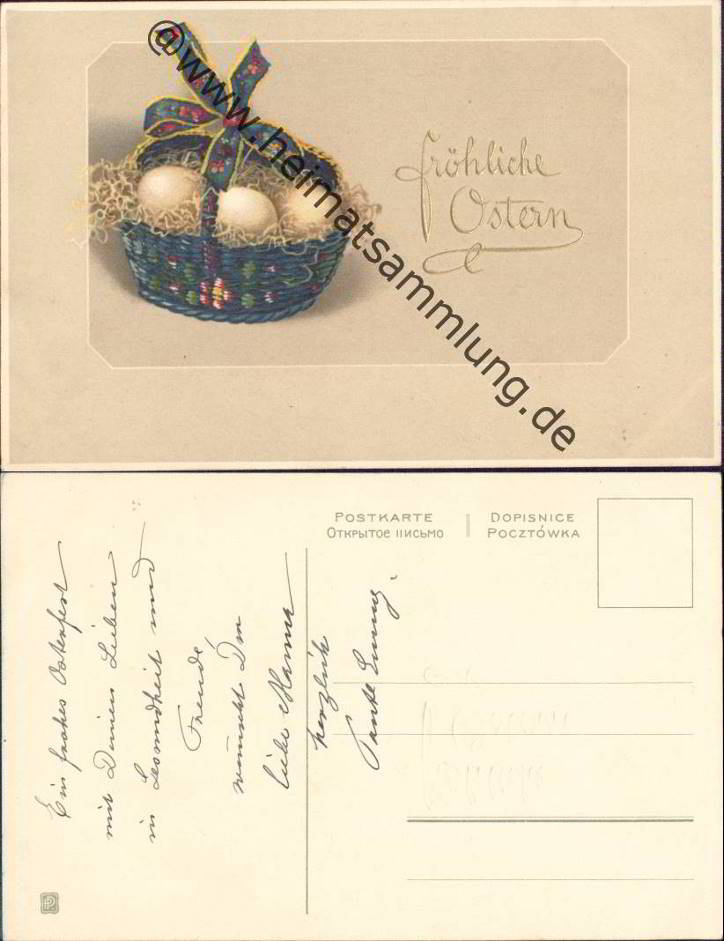 @www.heimatsammlung.de
fröhliche
Ostern
POSTKARTE
DOPISNICE
ОТКРЫТОЕ ПИСЬМО
POCZTÓWKA
Ein frohes Osterfest
mit Deinen Lieben
in Gesundheit und
Freude,
wünscht Dir
liebe Hanna
herzlich
Tante Emmy.